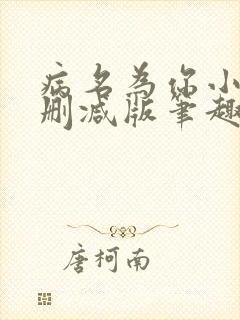 病名为你小
删减版笔趣
唐柯南